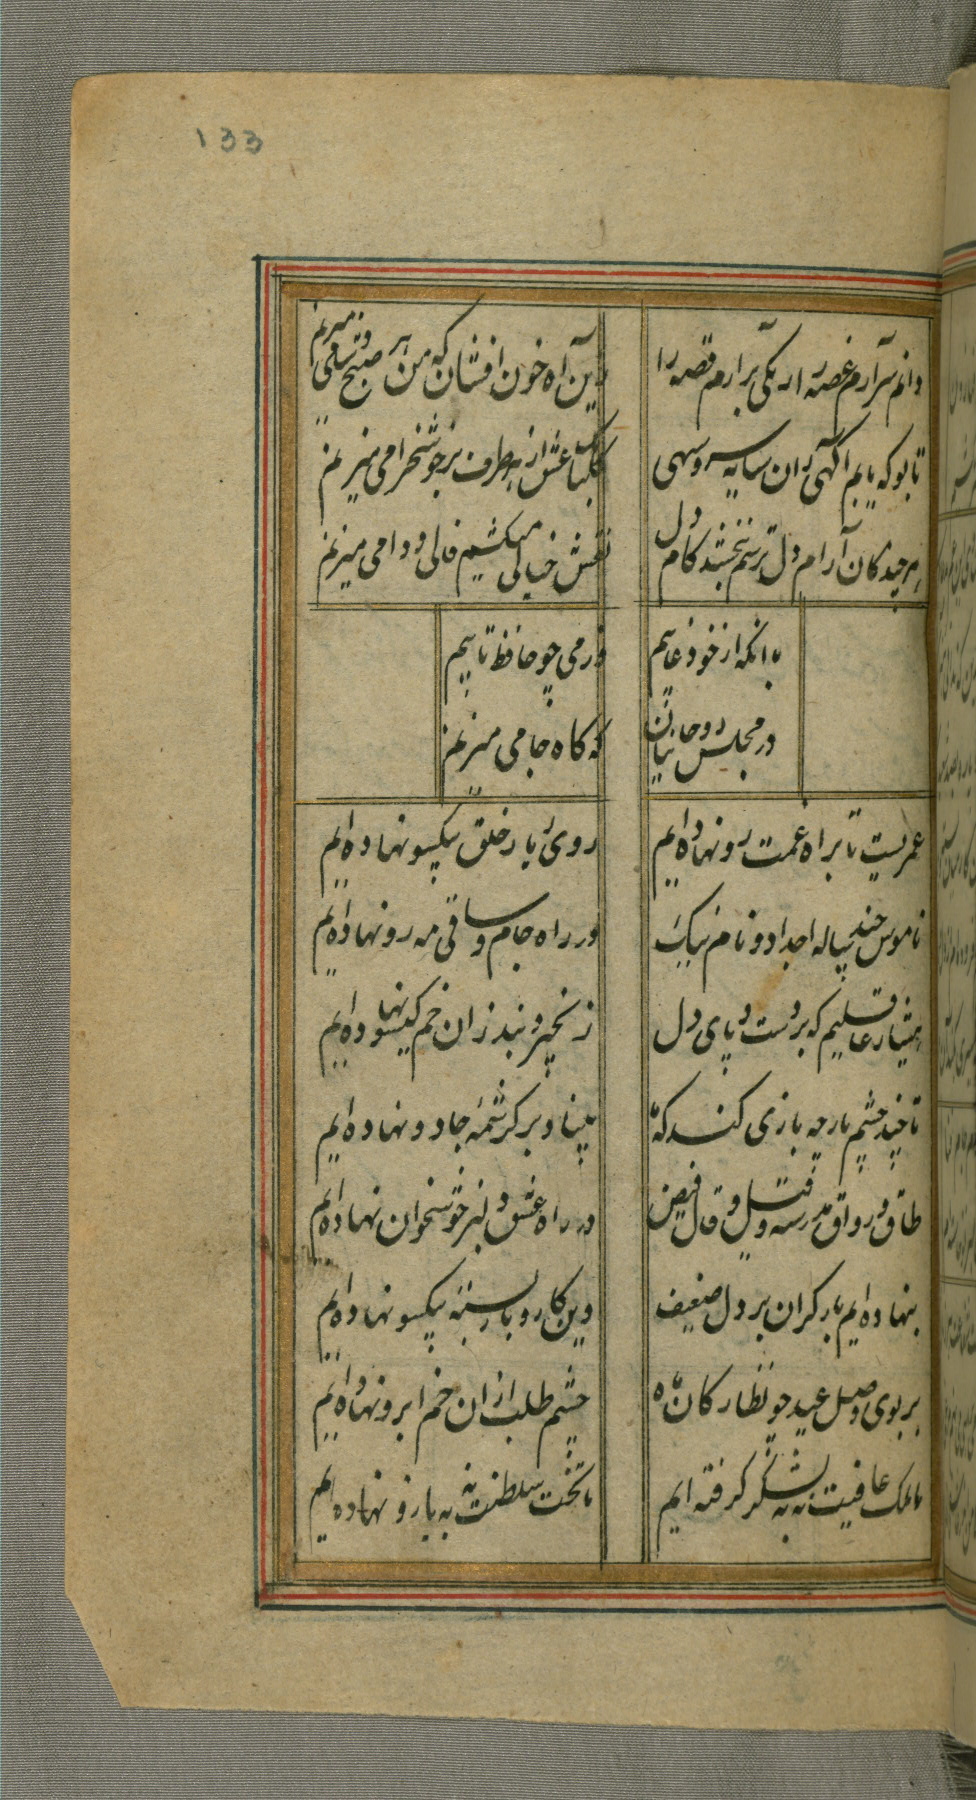 133
دانم سرآرم غصه را رنگی برآرم قصه را
این آه خون افشان که من هر صبح و شامی میزنم
تا بو که یابم آگهی زان سایه سرو سهی
گلبانگ عشق از هر طرف بر خوشخرامی میزنم
هر چند کان آرام دل ترسم نبخشد کام دل
نقش خیالی میکشم فالی دوامی میزنم
با آنکه از خود غایبم
وز می چو حافظ تایبم
در مجلس روحانیان
گه گاه جامی میزنم
عمریست تا براه غمت رو نهاده ایم
روی ریا ز خلق بیکسو نهاده ایم
ناموس چند ساله اجداد و نام نیک
در راه جام و ساقی مه رو نهاده ایم
هشیار عاقلیم که بر دست و پای دل
زنجیر و بند زان خم گیسو نهاده ایم
تا چند چشم یار چه بازی کند که ما
بنیاد بر کرشمه جادو نهاده ایم
طاق و رواق مدرسه و قیل و قال
در راه عشق دلبر خوشخوان نهاده ایم
بنهاده ایم بار گران بر دل ضعیف
وین کار و بار بسته بیکسو نهاده ایم
بر بوی وصل عید چو نظارگان ماه
چشم طلب از ان خم ابرو نهاده ایم
ما ملک عافیت نه به لشکر گرفته ایم
ما تخت سلطنت نه به بازو نهاده ایم